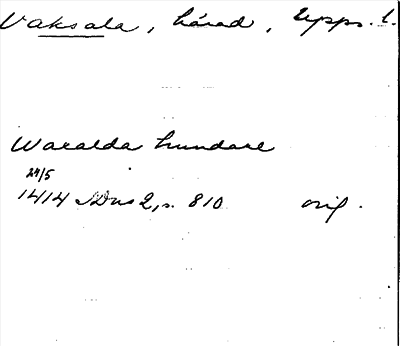 Vaksala, härad, Upps. l.
Waxalda hundare
24/5
1414 SDns 2, s. 810 orig.